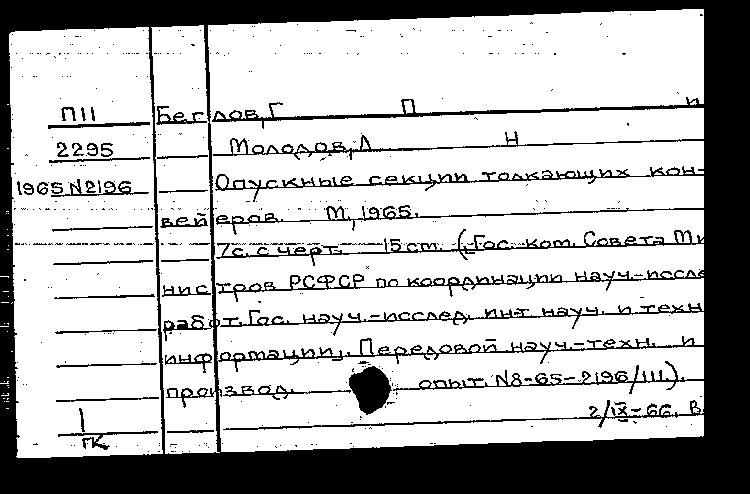 П11 Беглов, Г П и
2295 Молодов, Л Н
1965 N2196 Опускные секции толкающих кон-
вейеров. М, 1965.
7с. с черт. 15 cm. („Гос. ком. Совета Ми
нистров РСФСР по координации науч.-иссле
работ. Гос. науч.-исслед. ин-т науч. и техн
информации„. Передовой науч.-техн. и
производ. опыт. N8-65-2196/111).
2/IX-66. В.
ГК